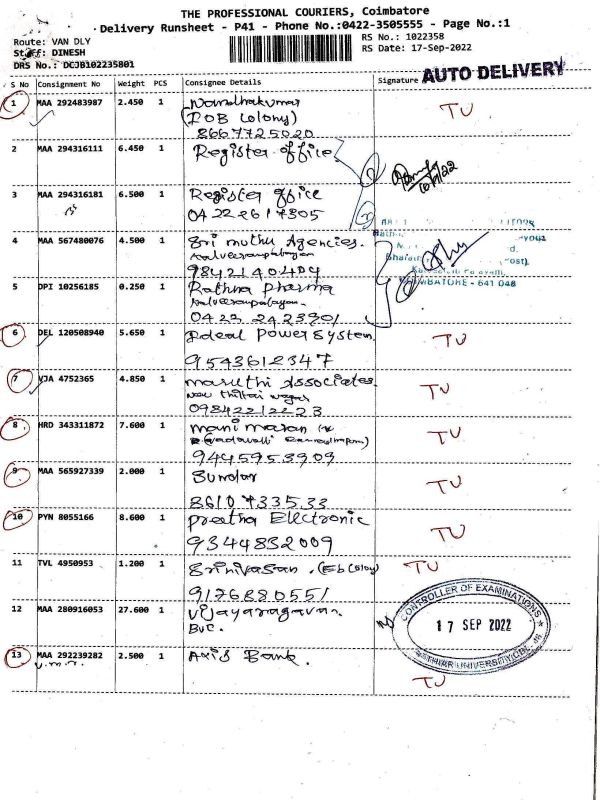 THE PROFESSIONAL COURIERS, Coimbatore
Delivery Runsheet - P41 - Phone No.:0422-3505555 - Page No.:1
Route: VAN DLY
RS No.: 1022358
Staff: DINESH
RS Date: 17-Sep-2022
DRS No.: DCJB102235801
AUTO DELIVERY
S No Consignment No Weight PCS Consignee Details Signature
1 MAA 292483987 2.450 1 Nandhakumar TU
(IOB Colony)
8667725020
2 MAA 294316111 6.450 1 Register office
3 MAA 294316181 6.500 1 Register office
0422 2617305
4 MAA 567480076 4.500 1 Sri muthu Agencies.
98421 40404
5 DPI 10256185 0.250 1 Rathna pharma
0422 2423901
COIMBATORE - 641 046
6 DEL 120508940 5.650 1 Ideal Power System. TU
9543612347
7 VJA 4752365 4.850 1 maruthi Associates. TU
New thillai nagar
09842212223
8 HRD 343311872 7.600 1 mani maran TU
9445953909
9 MAA 565927339 2.000 1 Sundar TU
86107 33533
10 PYN 8055166 8.600 1 Preetha Electronic TU
9344832009
11 TVL 4950953 1.200 1 Srinivasan. (Eb Colony) TU
9176880551
12 MAA 280916053 27.600 1 Vijayaragavan.
BUC.
CONTROLLER OF EXAMINATIONS
17 SEP 2022
13 MAA 292239282 2.500 1 Axis Bank. TU